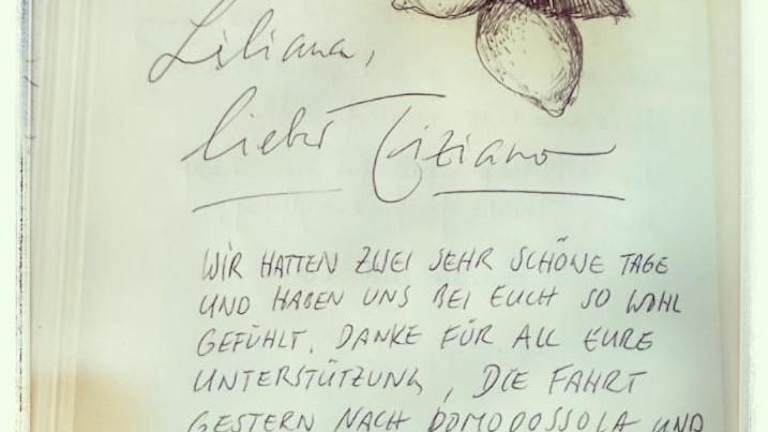 Liliana,
lieber Tiziano
WIR HATTEN ZWEI SEHR SCHÖNE TAGE
UND HABEN UNS BEI EUCH SO WOHL
GEFÜHLT. DANKE FÜR ALL EURE
UNTERSTÜTZUNG, DIE FAHRT
GESTERN NACH DOMODOSSOLA UND